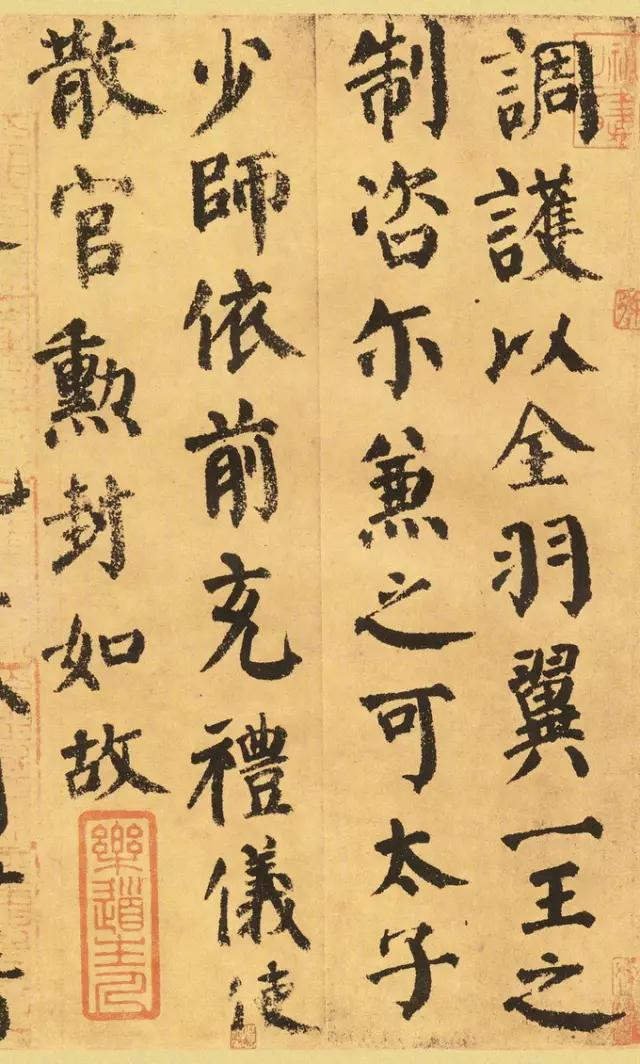 調護以全羽翼一王之
制咨尓兼之可太子
少師依前充禮儀使
散官勲封如故